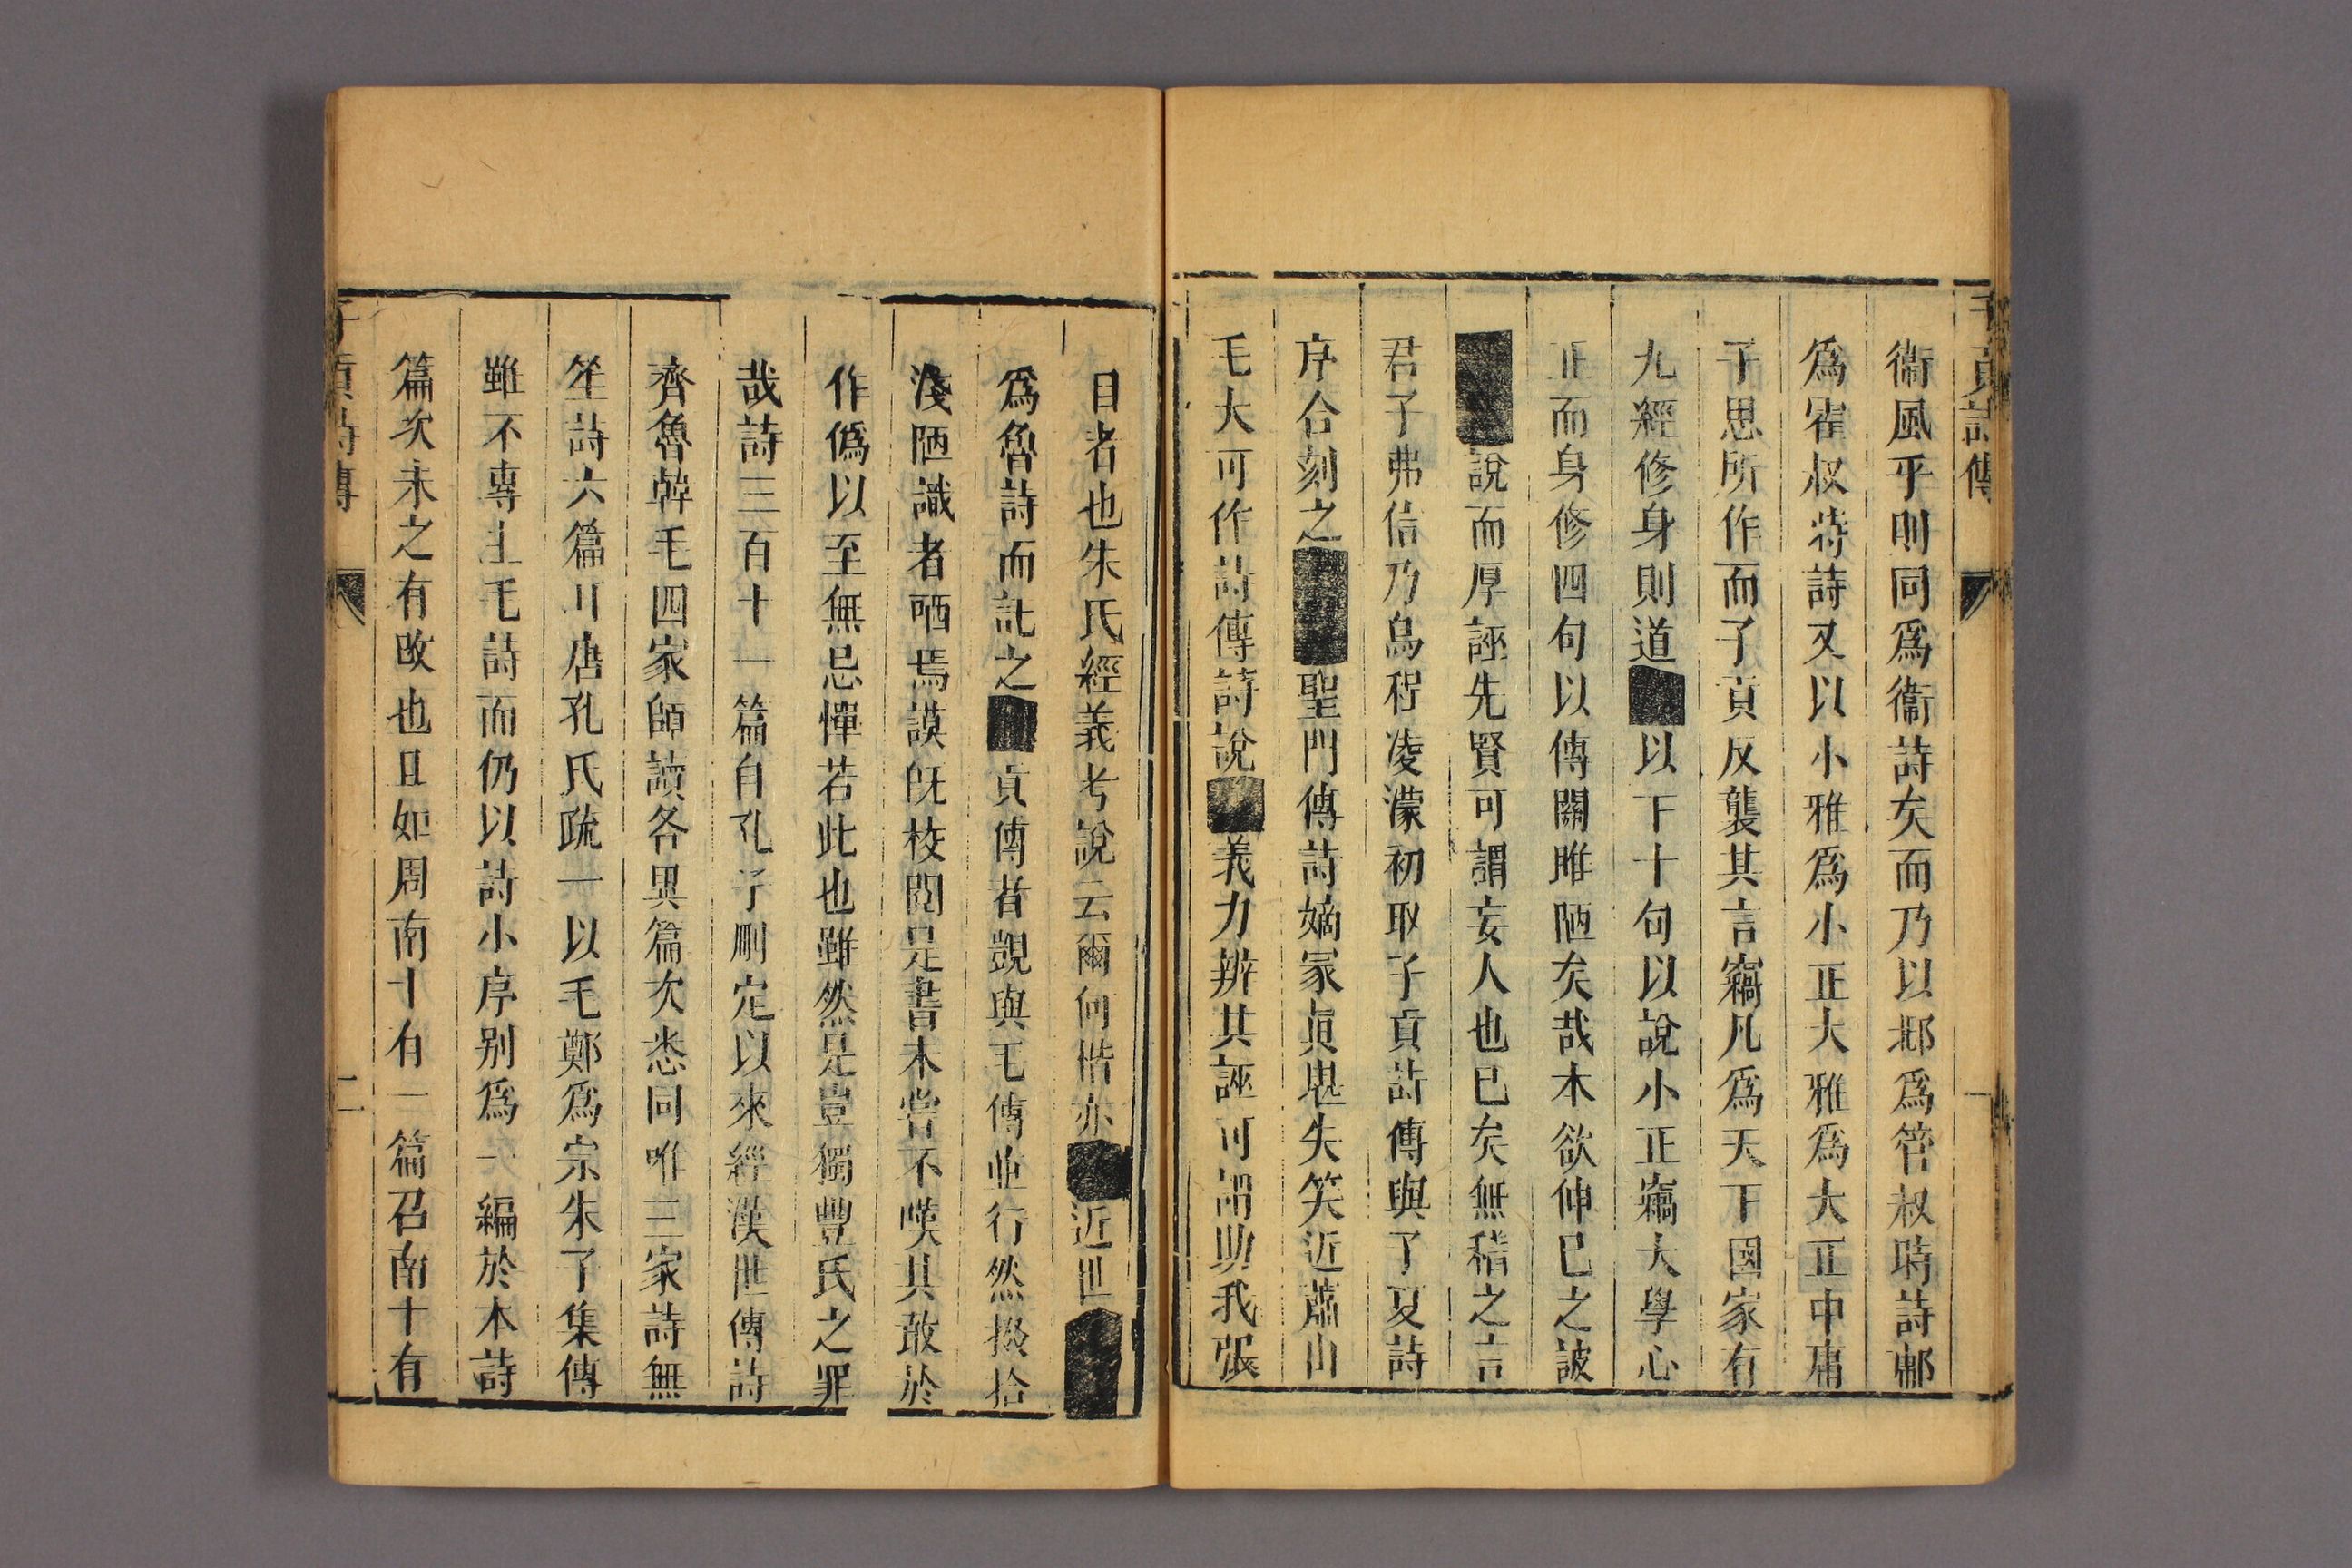 子貢詩傳
衞風乎則同爲衞詩矣而乃以邶爲管叔時詩鄘
爲霍叔時詩又以小雅爲小正大雅爲大正中庸
子思所作而子貢反襲其言竊凡爲天下國家有
九經修身則道以下十句以說小正竊大學心
正而身修四句以傳關雎陋矣哉本欲伸已之詖
說而厚誣先賢可謂妄人也已矣無稽之言
君子弗信乃烏程凌濛初取子貢詩傳與子夏詩
序合刻之聖門傳詩嫡冢眞堪失笑近蕭山
毛大可作詩傳詩說義力辨其誣可謂助我張
目者也朱氏經義考說云爾何楷亦近世
爲魯詩而託之貢傳者覬與毛傳並行然掇拾
淺陋識者哂焉謨旣校閱是書未嘗不嘆其敢於
作僞以至無忌憚若此也雖然是豈獨豐氏之罪
哉詩三百十一篇自孔子刪定以來經漢世傳詩
齊魯韓毛四家師讀各異篇次悉同唯三家詩無
笙詩六篇耳唐孔氏疏一以毛鄭爲宗朱子集傳
雖不專主毛詩而仍以詩小序别爲一編於本詩
篇次未之有改也且如周南十有一篇召南十有
子貢詩傳
二